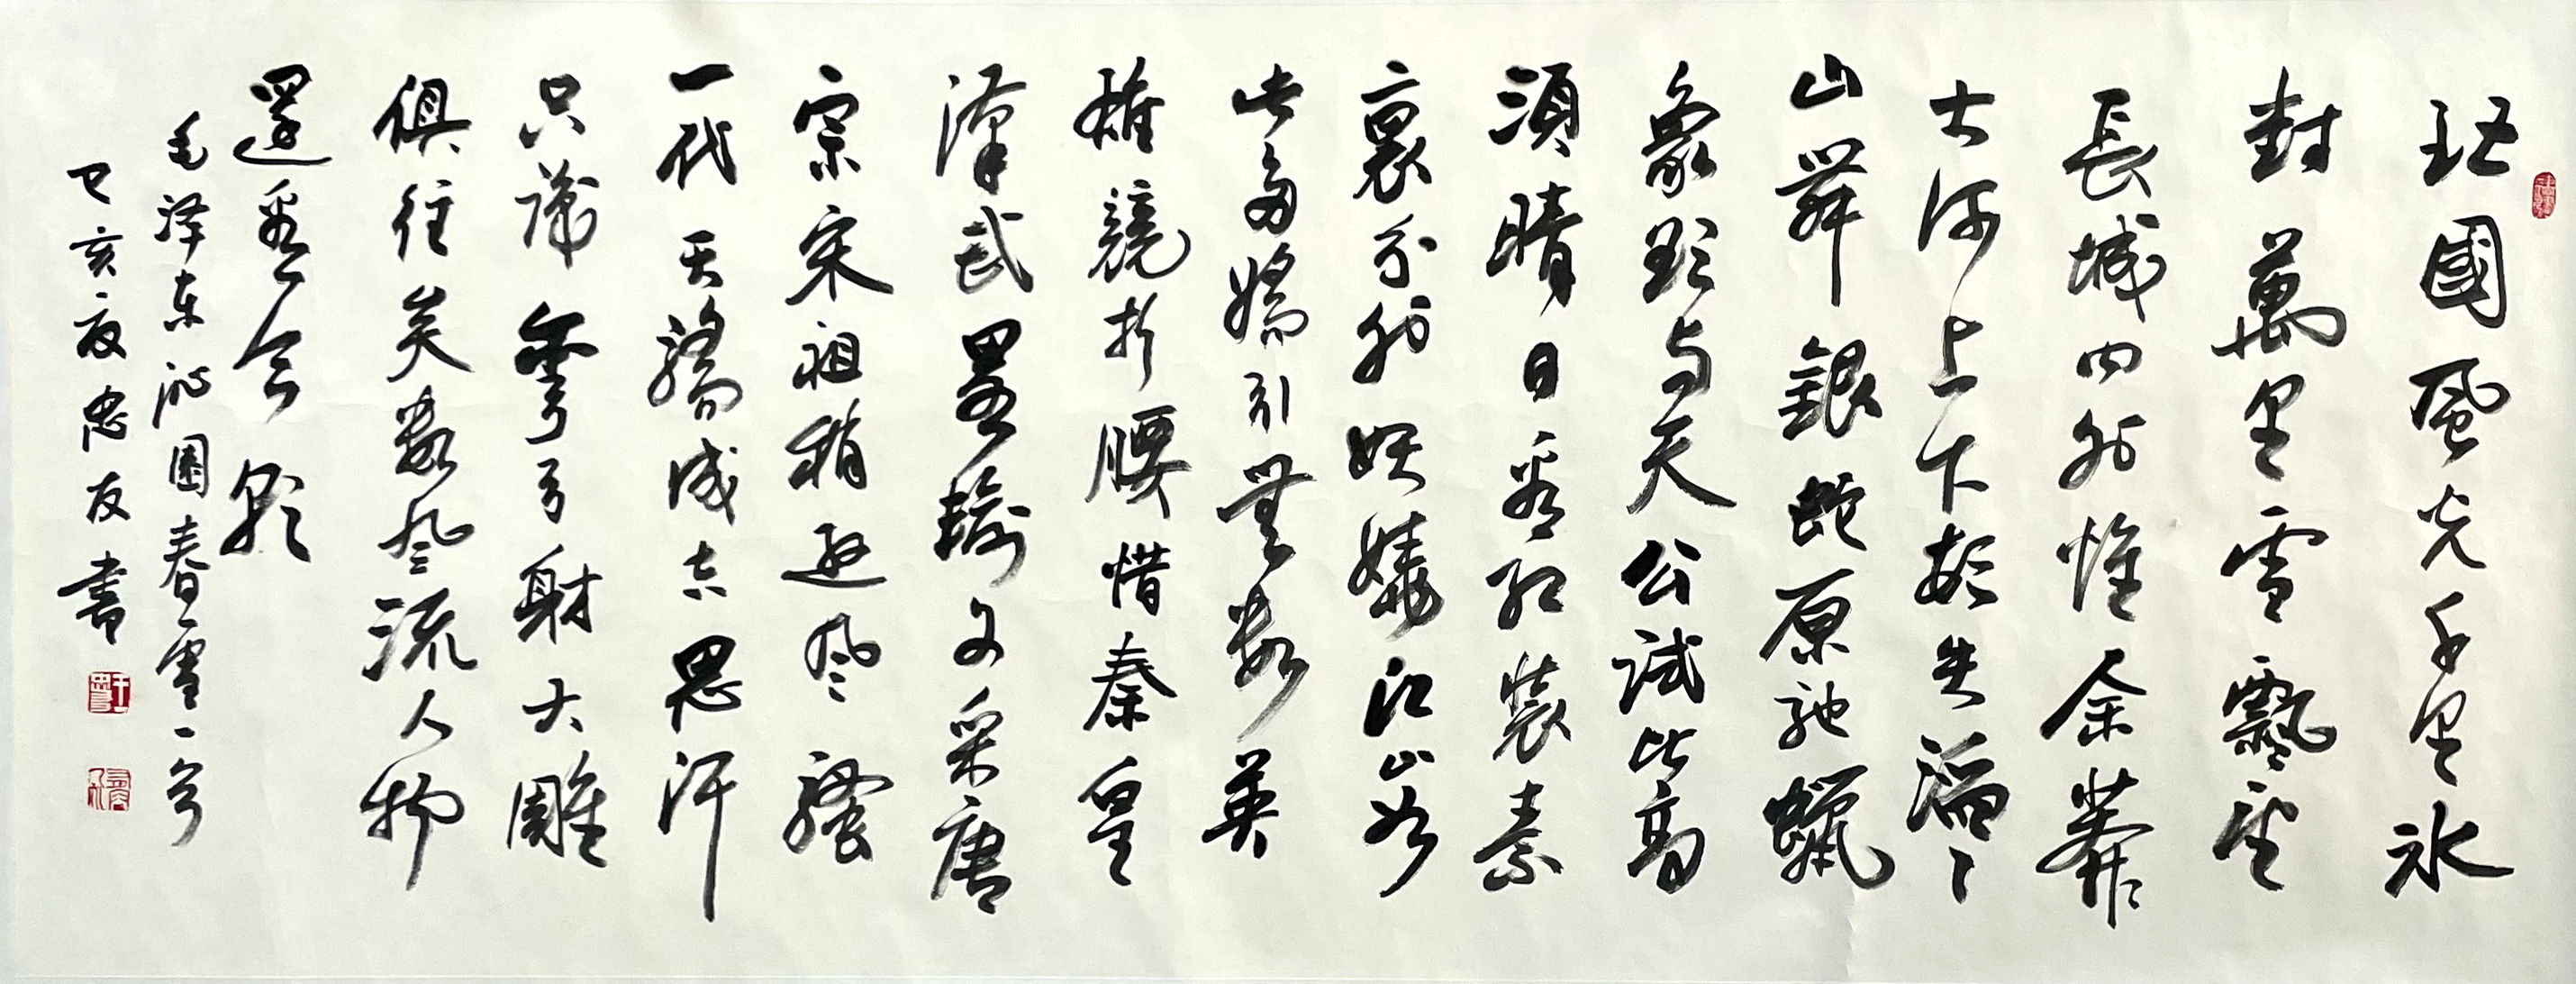 北國風光千里冰
對萬里雪飄望
長城内外惟余莽々
大河上下頓失滔々
山舞銀蛇原馳蠟
象欲与天公試比高
須晴日看红裝素
裹分外妖嬈江山如
此多嬌引無數英
雄競折腰惜秦皇
漢武略輸文采唐
宗宋祖稍遜风騷
一代天驕成吉思汗
只識彎弓射大雕
俱往矣數风流人物
還看今朝
毛泽东沁園春雪一首
己亥夏忠友書